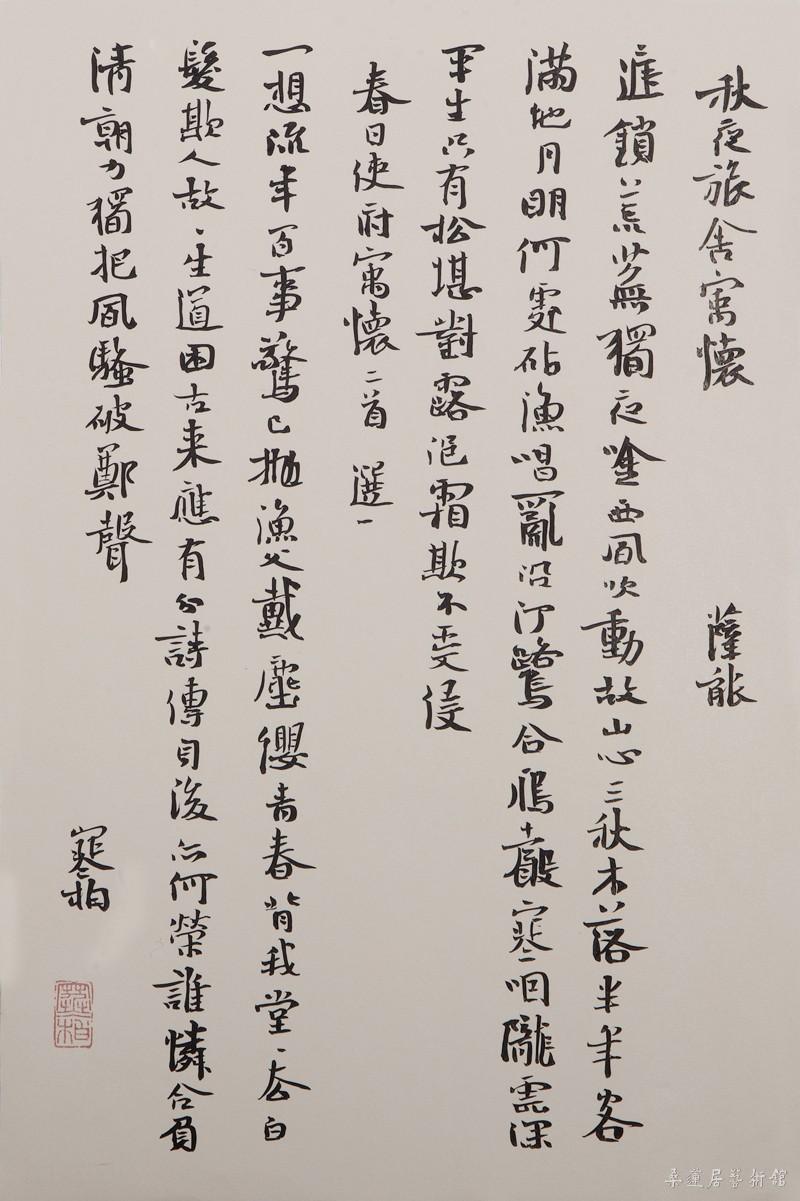 秋夜旅舍寓懷 薛能
庭鎖荒蕪獨夜唫西風吹動故山心三秋木落半年客
滿地月明何處砧漁唱亂沿汀鷺合鴈聲寒咽隴雲深
平生只有松堪對露浥霜欺不受侵
春日使府寓懷二首 選一
一想流年百事驚已抛漁父戴塵纓青春背我堂、去白
髮欺人故、生道困古来應有分詩傳身後亦何榮誰憐合負
清朝力獨把風騷破鄭聲
寒柏
寒柏
桑蓮居藝術館